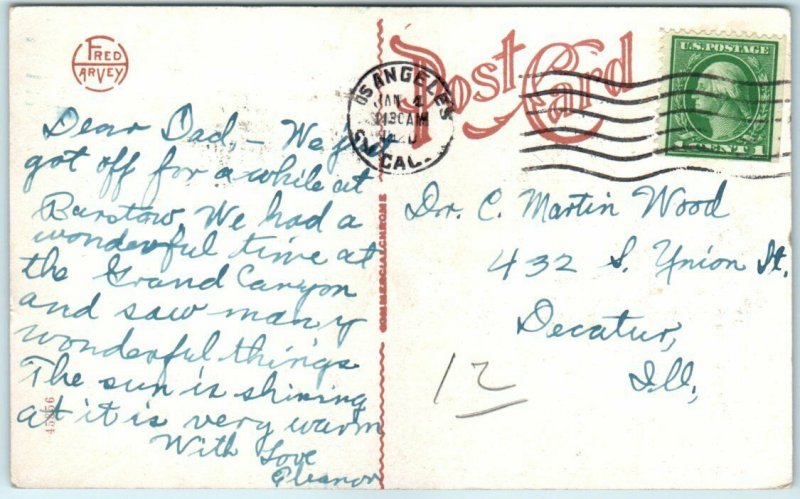 FRED
HARVEY
Dear Dad, - We just
got off for a while at
Barstow We had a
wonderful time at
the Grand Canyon
and saw many
wonderful things.
The sun is shining
at it is very warm
With Love
Eleanor
45856
COMMERCIALCHROME
Post Card
LOS ANGELES
JAN 4
1130AM
CAL.
U.S. POSTAGE
1 CENT 1
Dr. C. Martin Wood
432 S. Union St.
Decatur,
Ill.
12